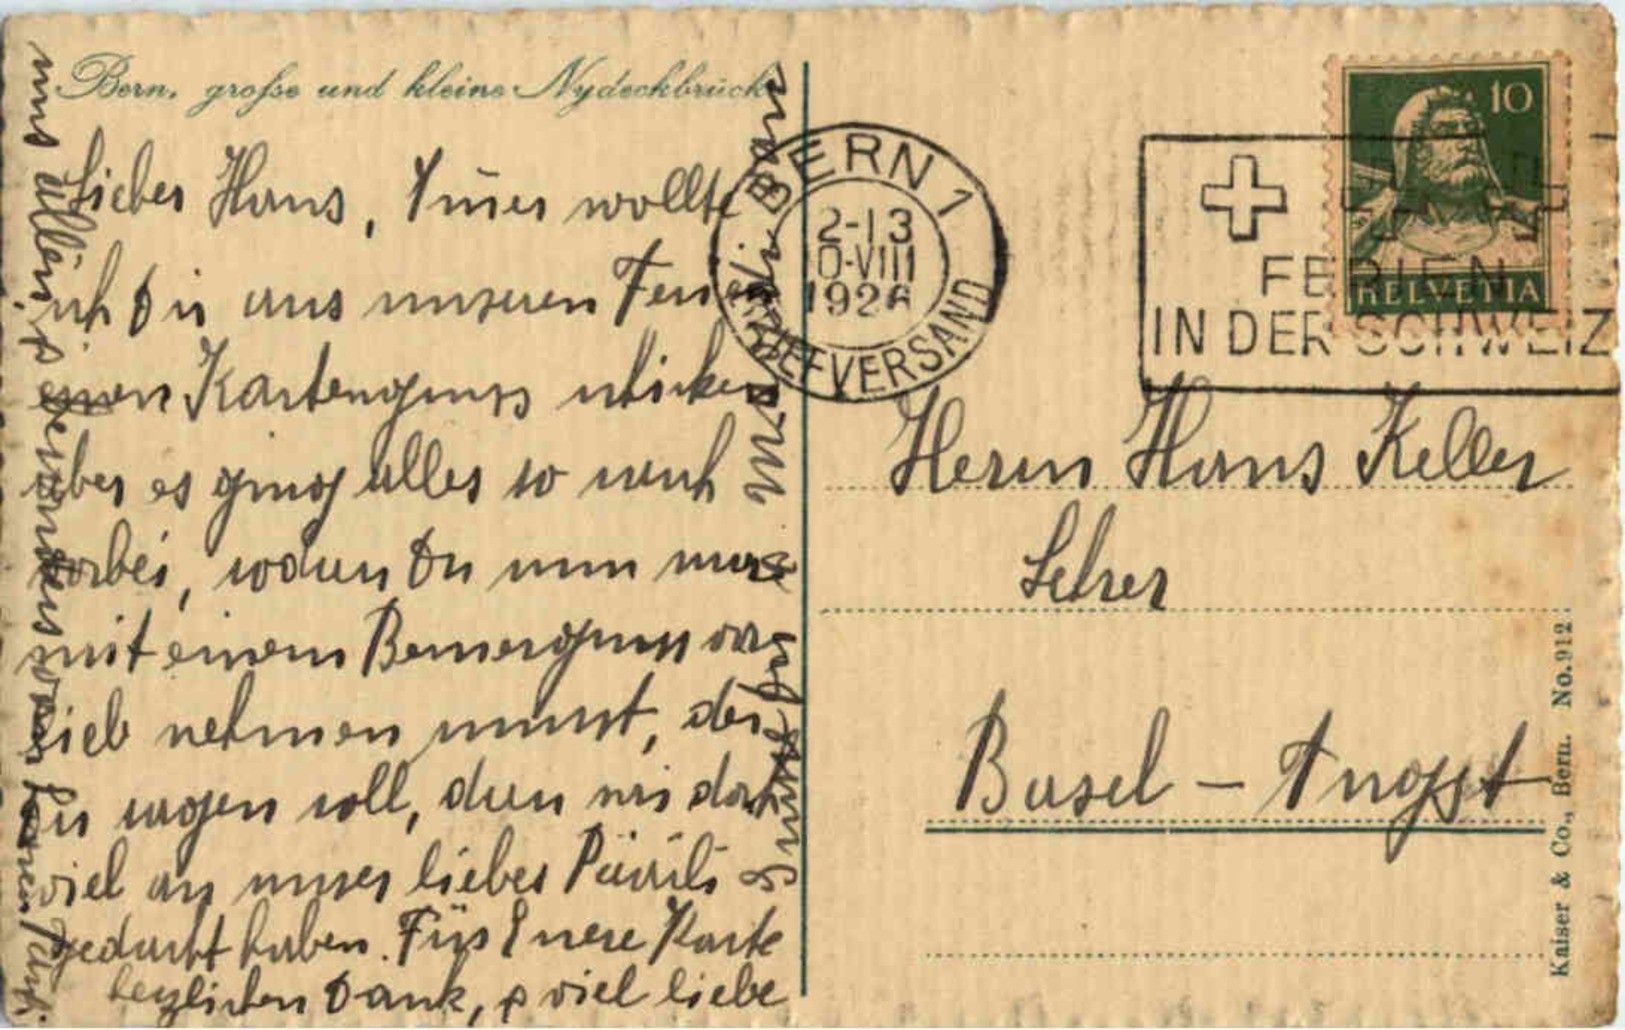 Bern, große und kleine Nydeckbrücke
Lieber Hans, Immer wollte
ich Dir aus unseren Ferien
einen Kartengruss schicken
aber es ging alles so rasch
vorbei, sodass Du nun
mit einem Bernergruss vor
lieb nehmen musst, der
Dir sagen soll, dass wir doch
viel an unser liebes
gedacht haben. Für Euere Karte
herzlichen Dank, & viel liebe
BERN 1
12-13
10-VIII
1926
BRIEFVERSAND
10
HELVETIA
FERIEN
IN DER SCHWEIZ
Herrn Hans Keller
Lehrer
Basel - Augst
Kaiser & Co., Bern. No. 912